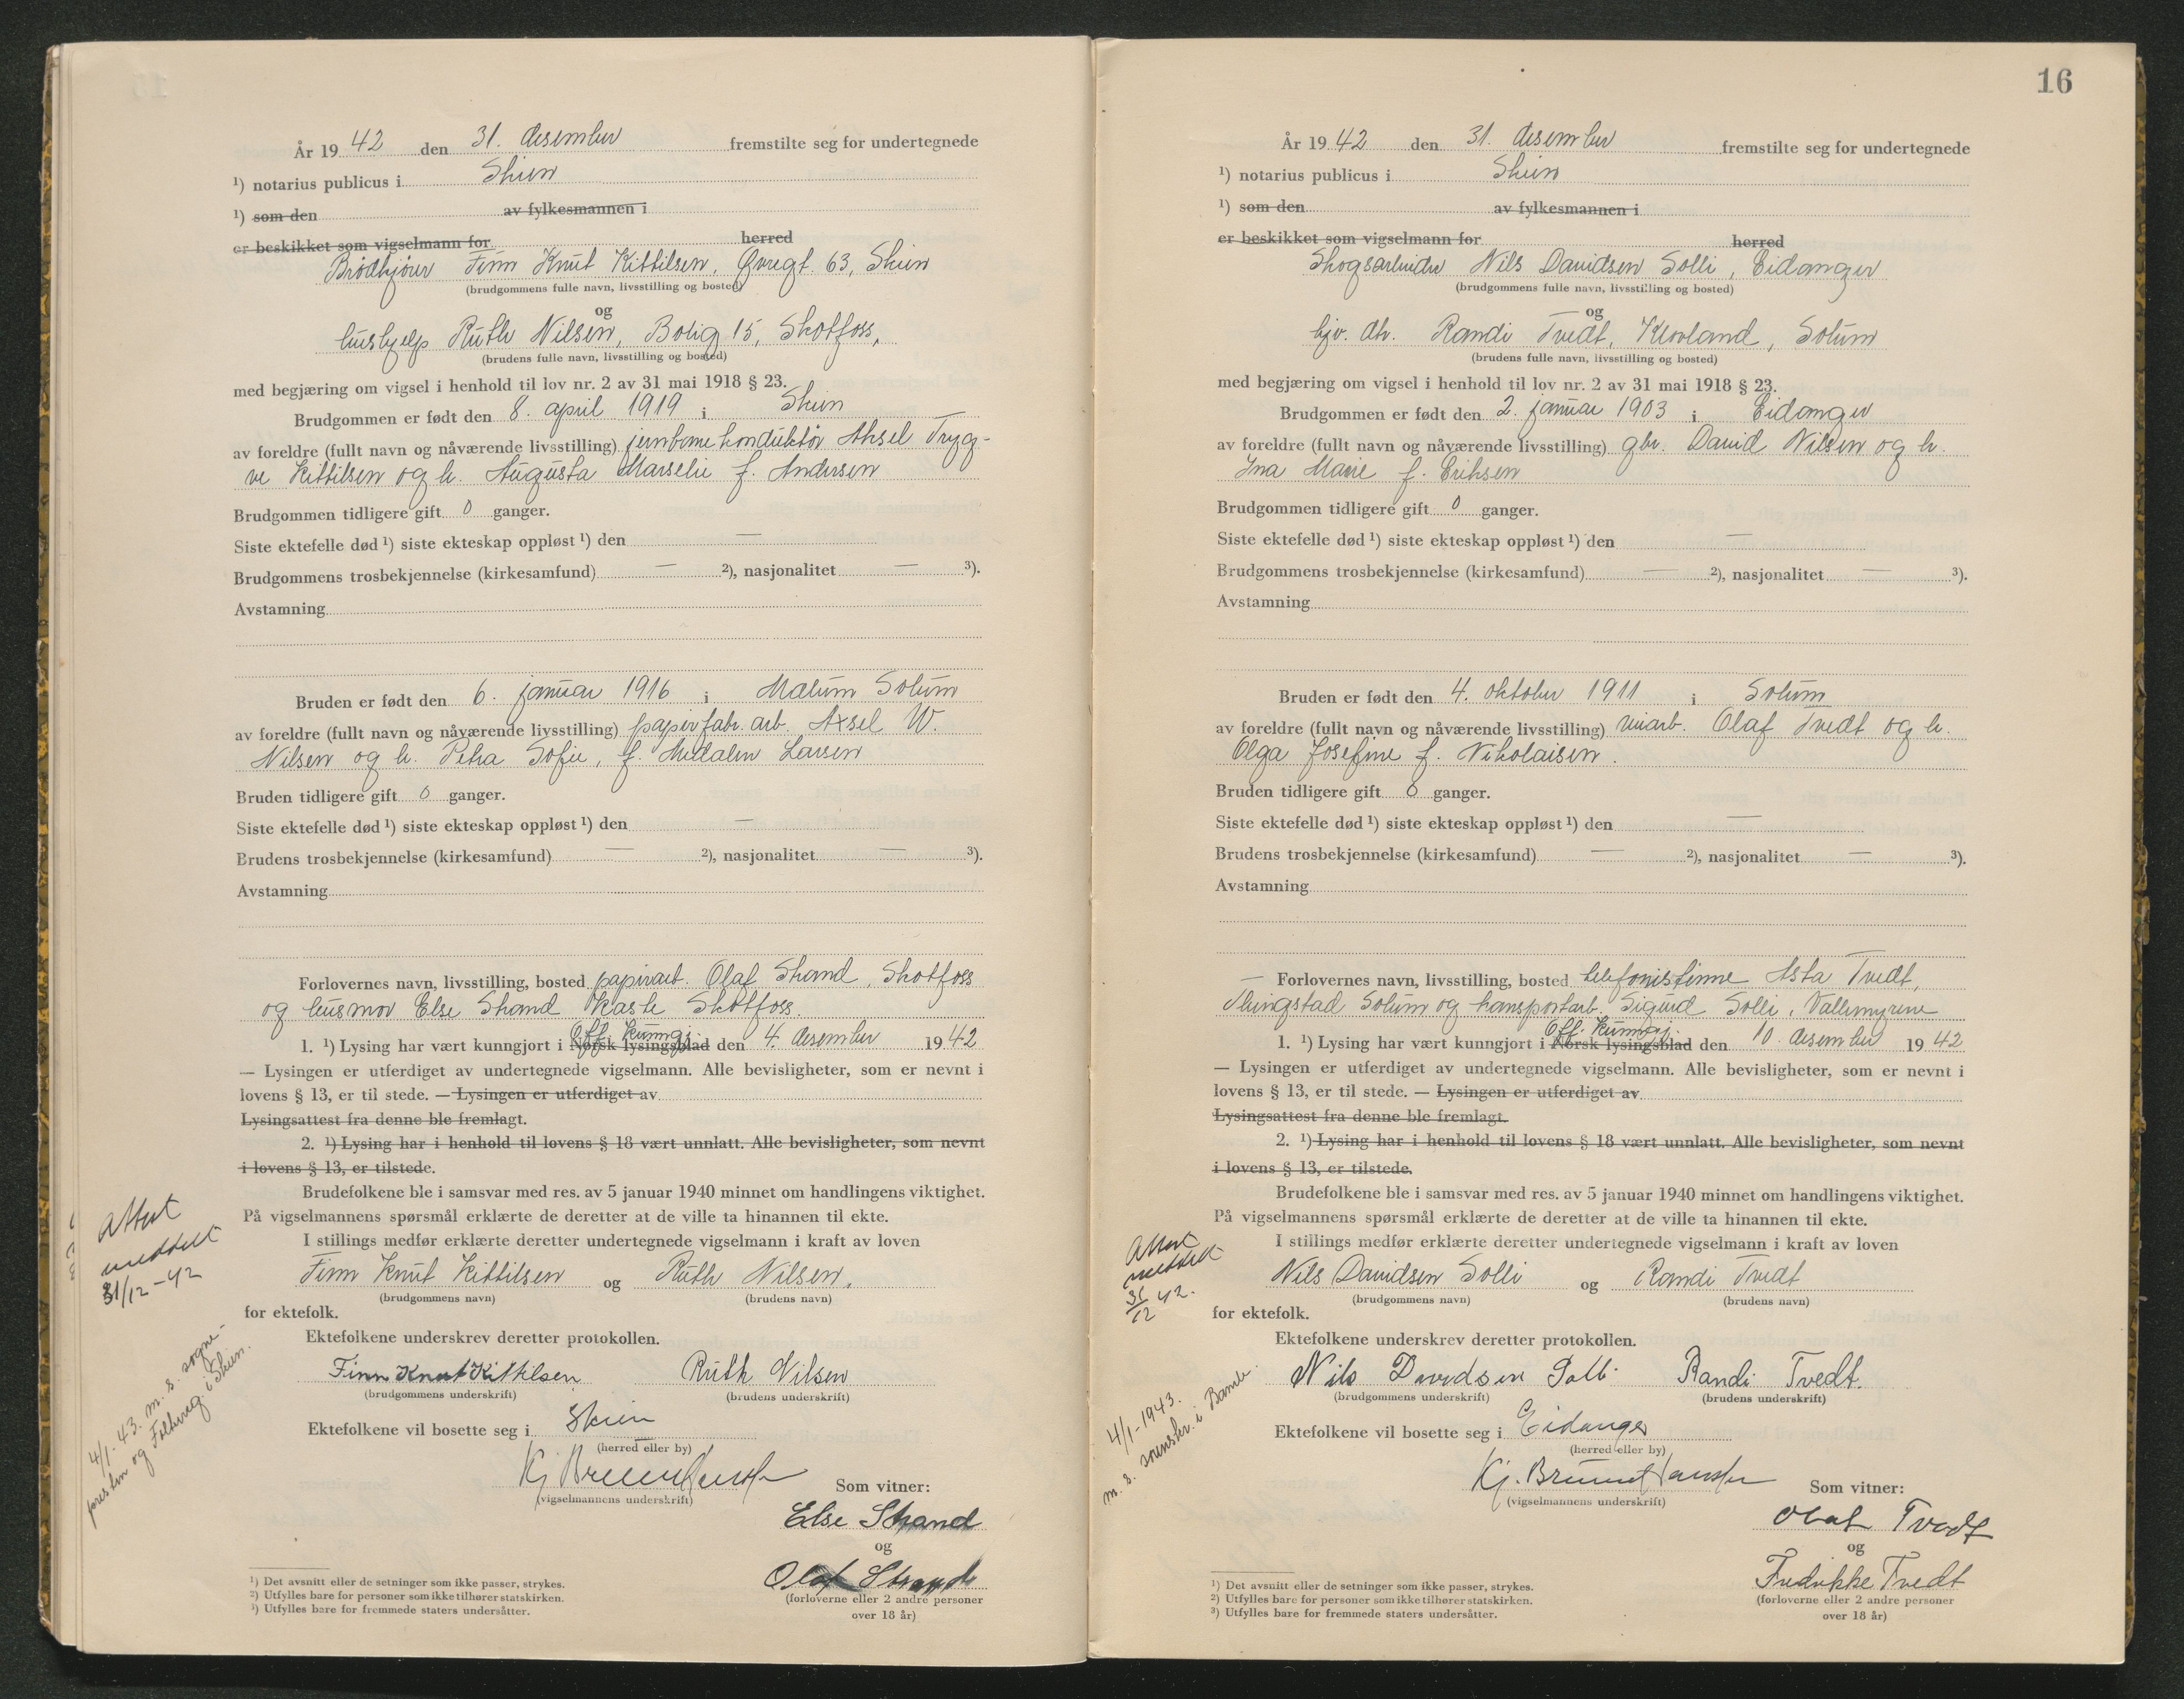 År 19 42 den 31. desember fremstilte seg for undertegnede
¹) notarius publicus i Skien
¹) som den av fylkesmannen i
er beskikket som vigselmann for herred
Brødkjører Finn Knut Kittilsen, Øvregt. 63, Skien
(brudgommens fulle navn, livsstilling og bosted)
og
hushjelp Ruth Nilsen, Bolig 15, Skotfoss,
(brudens fulle navn, livsstilling og bosted)
med begjæring om vigsel i henhold til lov nr. 2 av 31 mai 1918 § 23.
Brudgommen er født den 8. april 1919 i Skien
av foreldre (fullt navn og nåværende livsstilling) jernbanekonduktør Aksel Tryg-
ve Kittilsen og h. Augusta Marselie f. Andersen
Brudgommen tidligere gift 0 ganger.
Siste ektefelle død ¹) siste ekteskap oppløst ¹) den —
Brudgommens trosbekjennelse (kirkesamfund) — ²), nasjonalitet — ³).
Avstamning
Bruden er født den 6. januar 1916 i Mælum Solum
av foreldre (fullt navn og nåværende livsstilling) papirfabr. arb. Axsel W.
Nilsen og h. Petra Sofie, f. Larsen
Bruden tidligere gift 0 ganger.
Siste ektefelle død ¹) siste ekteskap oppløst ¹) den —
Brudens trosbekjennelse (kirkesamfund) — ²), nasjonalitet — ³).
Avstamning
Forlovernes navn, livsstilling, bosted papirarb. Olaf Strand, Skotfoss
og husmor Else Strand Skotfoss.
Off. kunngj.
1. ¹) Lysing har vært kunngjort i Norsk lysingsblad den 4. desember 19 42
— Lysingen er utferdiget av undertegnede vigselmann. Alle bevisligheter, som er nevnt i
lovens § 13, er til stede. — Lysingen er utferdiget av
Lysingsattest fra denne ble fremlagt.
2. ¹) Lysing har i henhold til lovens § 18 vært unnlatt. Alle bevisligheter, som nevnt
i lovens § 13, er tilstede.
Brudefolkene ble i samsvar med res. av 5 januar 1940 minnet om handlingens viktighet.
På vigselmannens spørsmål erklærte de deretter at de ville ta hinannen til ekte.
I stillings medfør erklærte deretter undertegnede vigselmann i kraft av loven
Finn Knut Kittilsen og Ruth Nilsen,
(brudgommens navn) (brudens navn)
for ektefolk.
Ektefolkene underskrev deretter protokollen.
Finn Knut Kittilsen Ruth Nilsen
(brudgommens underskrift) (brudens underskrift)
Ektefolkene vil bosette seg i Skien
(herred eller by)
Kj. Bruun Hanssen
(vigselmannens underskrift)
Som vitner:
Else Strand
og
Olaf Strand
(forloverne eller 2 andre personer
over 18 år)
Attest
meddelt
31/12-42
4/1-43. m. s. sogne-
presten og Folkereg. i Skien.
¹) Det avsnitt eller de setninger som ikke passer, strykes.
²) Utfylles bare for personer som ikke tilhører statskirken.
³) Utfylles bare for fremmede staters undersåtter.
16
År 19 42 den 31. desember fremstilte seg for undertegnede
¹) notarius publicus i Skien
¹) som den av fylkesmannen i
er beskikket som vigselmann for herred
Skogsarbeider Nils Davidsen Solli, Eidanger
(brudgommens fulle navn, livsstilling og bosted)
og
hjv. dtr. Randi Tvedt, Klovland, Solum
(brudens fulle navn, livsstilling og bosted)
med begjæring om vigsel i henhold til lov nr. 2 av 31 mai 1918 § 23.
Brudgommen er født den 2. januar 1903 i Eidanger
av foreldre (fullt navn og nåværende livsstilling) gbr. David Nilsen og h.
Ina Marie f. Eriksen
Brudgommen tidligere gift 0 ganger.
Siste ektefelle død ¹) siste ekteskap oppløst ¹) den —
Brudgommens trosbekjennelse (kirkesamfund) — ²), nasjonalitet — ³).
Avstamning
Bruden er født den 4. oktober 1911 i Solum
av foreldre (fullt navn og nåværende livsstilling) Olaf Tvedt og h.
Olga Josefine f. Nikolaisen.
Bruden tidligere gift 0 ganger.
Siste ektefelle død ¹) siste ekteskap oppløst ¹) den —
Brudens trosbekjennelse (kirkesamfund) — ²), nasjonalitet — ³).
Avstamning
— Forlovernes navn, livsstilling, bosted telefonistinne Asta Tvedt,
Solum og transportarb. Sigurd Solli, Vallermyrene
Off. kunngj.
1. ¹) Lysing har vært kunngjort i Norsk lysingsblad den 10. desember 19 42
— Lysingen er utferdiget av undertegnede vigselmann. Alle bevisligheter, som er nevnt i
lovens § 13, er til stede. — Lysingen er utferdiget av
Lysingsattest fra denne ble fremlagt.
2. ¹) Lysing har i henhold til lovens § 18 vært unnlatt. Alle bevisligheter, som nevnt
i lovens § 13, er tilstede.
Brudefolkene ble i samsvar med res. av 5 januar 1940 minnet om handlingens viktighet.
På vigselmannens spørsmål erklærte de deretter at de ville ta hinannen til ekte.
I stillings medfør erklærte deretter undertegnede vigselmann i kraft av loven
Nils Davidsen Solli og Randi Tvedt
(brudgommens navn) (brudens navn)
for ektefolk.
Ektefolkene underskrev deretter protokollen.
Nils Davidsen Solli Randi Tvedt.
(brudgommens underskrift) (brudens underskrift)
Ektefolkene vil bosette seg i Eidanger
(herred eller by)
Kj. Bruun Hanssen
(vigselmannens underskrift)
Som vitner:
Olaf Tvedt
og
Fredrikke Tvedt
(forloverne eller 2 andre personer
over 18 år)
Attest
meddelt
31/12 42.
4/1-1943.
m. s. sorenskr. i Bamble.
¹) Det avsnitt eller de setninger som ikke passer, strykes.
²) Utfylles bare for personer som ikke tilhører statskirken.
³) Utfylles bare for fremmede staters undersåtter.